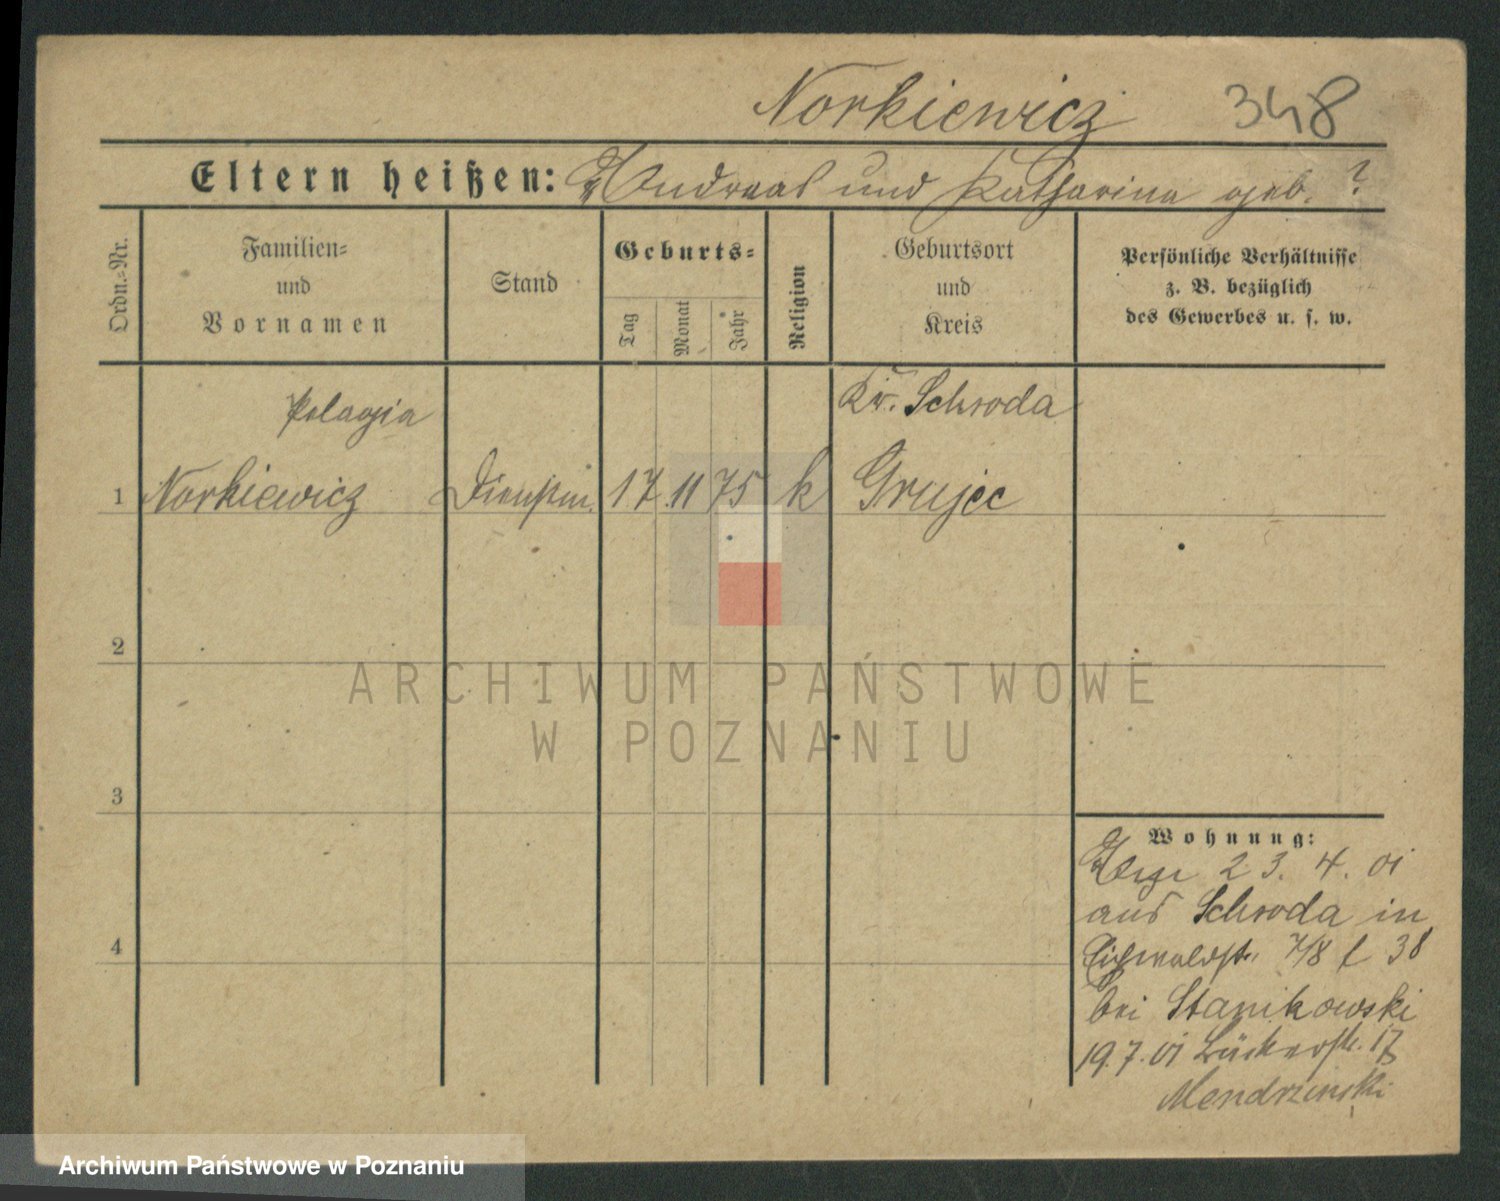 Norkiewicz 348
Eltern heißen: Andreas und Katharina geb. ?
Ordn.=Nr.
Familien=
und
Vornamen
Stand
Geburts=
Tag
Monat
Jahr
Religion
Geburtsort
und
Kreis
Persönliche Verhältnisse
z. B. bezüglich
des Gewerbes u. s. w.
Pelagia
Kr. Schroda
1 Norkiewicz Dienstm. 17 11 75 k Grujec
2
3
4
ARCHIWUM PAŃSTWOWE
W POZNANIU
Wohnung:
23. 4. 01
aus Schroda in
Eichwaldstr. 7/8 f 38
bei Stanikowski
19. 7. 01 Bäckerstr. 17
Mendrzinski
Archiwum Państwowe w Poznaniu